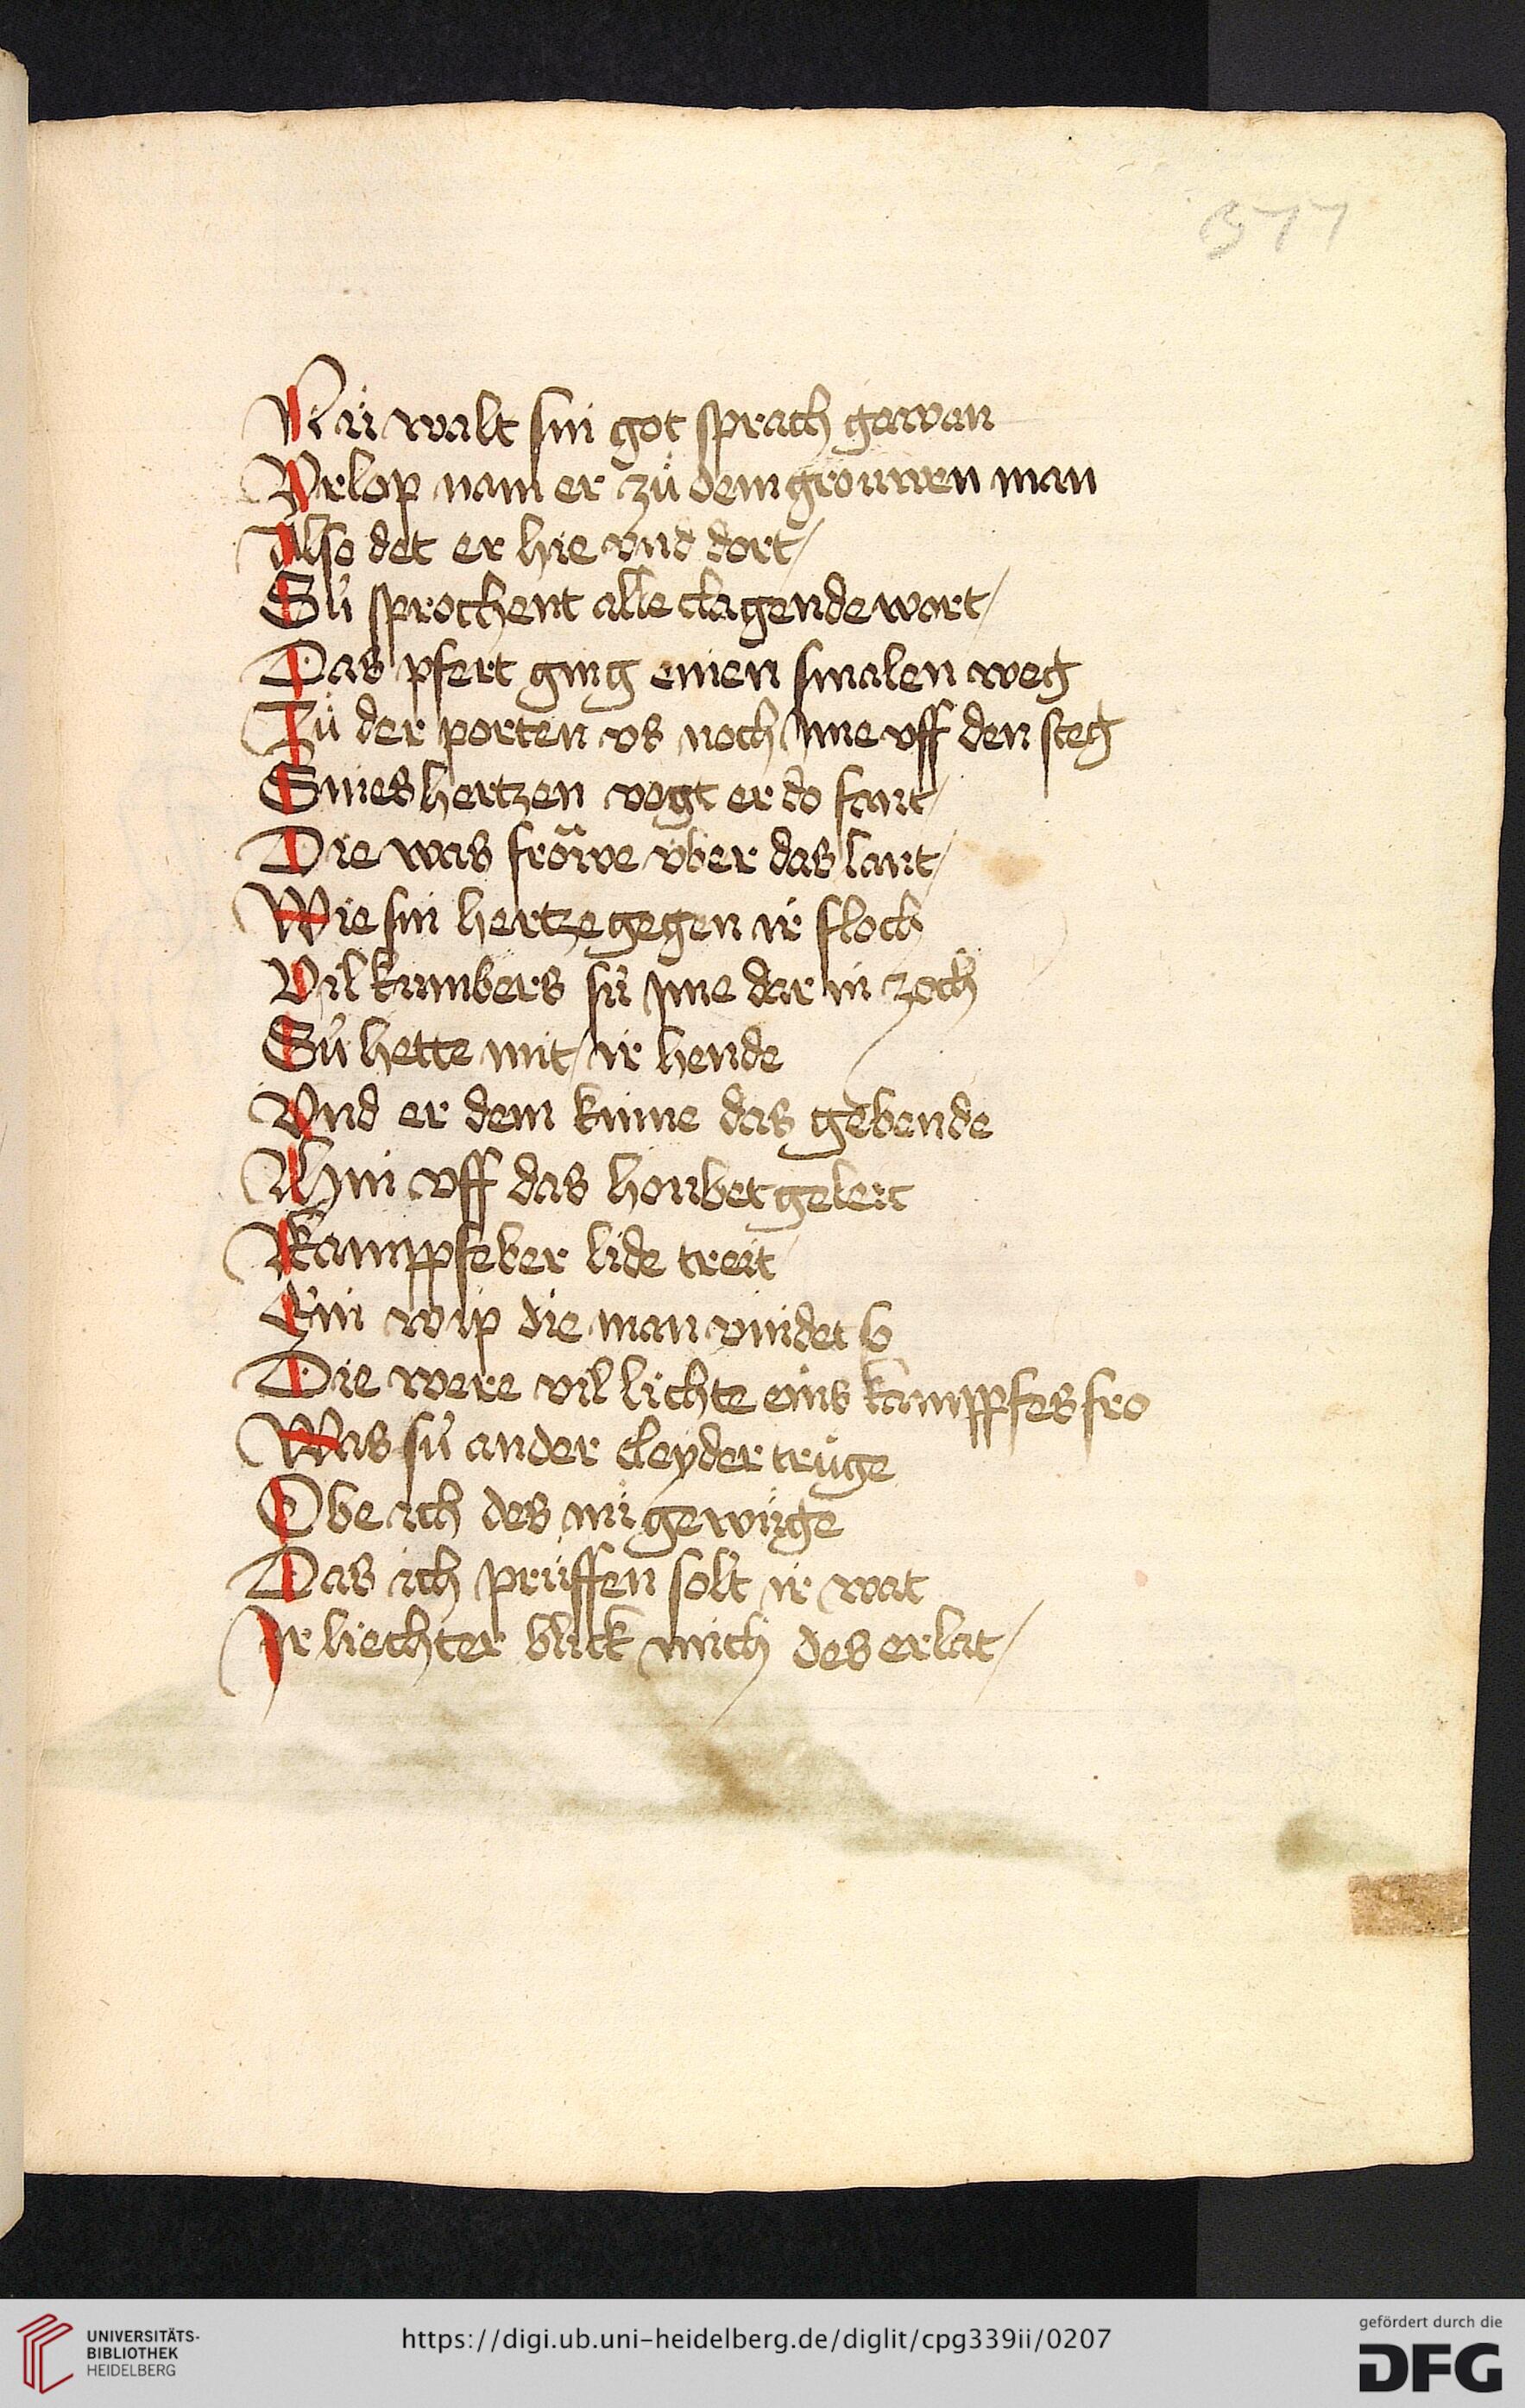 377
Nü walt sin got sprach gawan
Vrlop nam er zü dem grouwen man
Also det er hie vnd dort /
Sü sprochent alle clagende wort /
Das pfert ging einen smalen weg
Zü der porten vs noch ime vff den steg
Sines hertzen vogt er do fant /
Die was fröwe über das lant /
Wie sin hertze gegen ir floch
Vil kumbers sü ime dar in zoch
Sü hette mit / ir hende
Vnd er dem kinne das gebende
Hin vff das houbet geleit
Kamppfeber lide treit
Ein wip die man vindet so
Die were vil lichte eins kamppfes fro
Was sü ander cleyder trüge
Obe ich des nü gewüge
Das ich prüffen solt ir wat
Ir liechter blick mich des erlat /
UNIVERSITÄTS-
BIBLIOTHEK
HEIDELBERG
https://digi.ub.uni-heidelberg.de/diglit/cpg339ii/0207
gefördert durch die
DFG